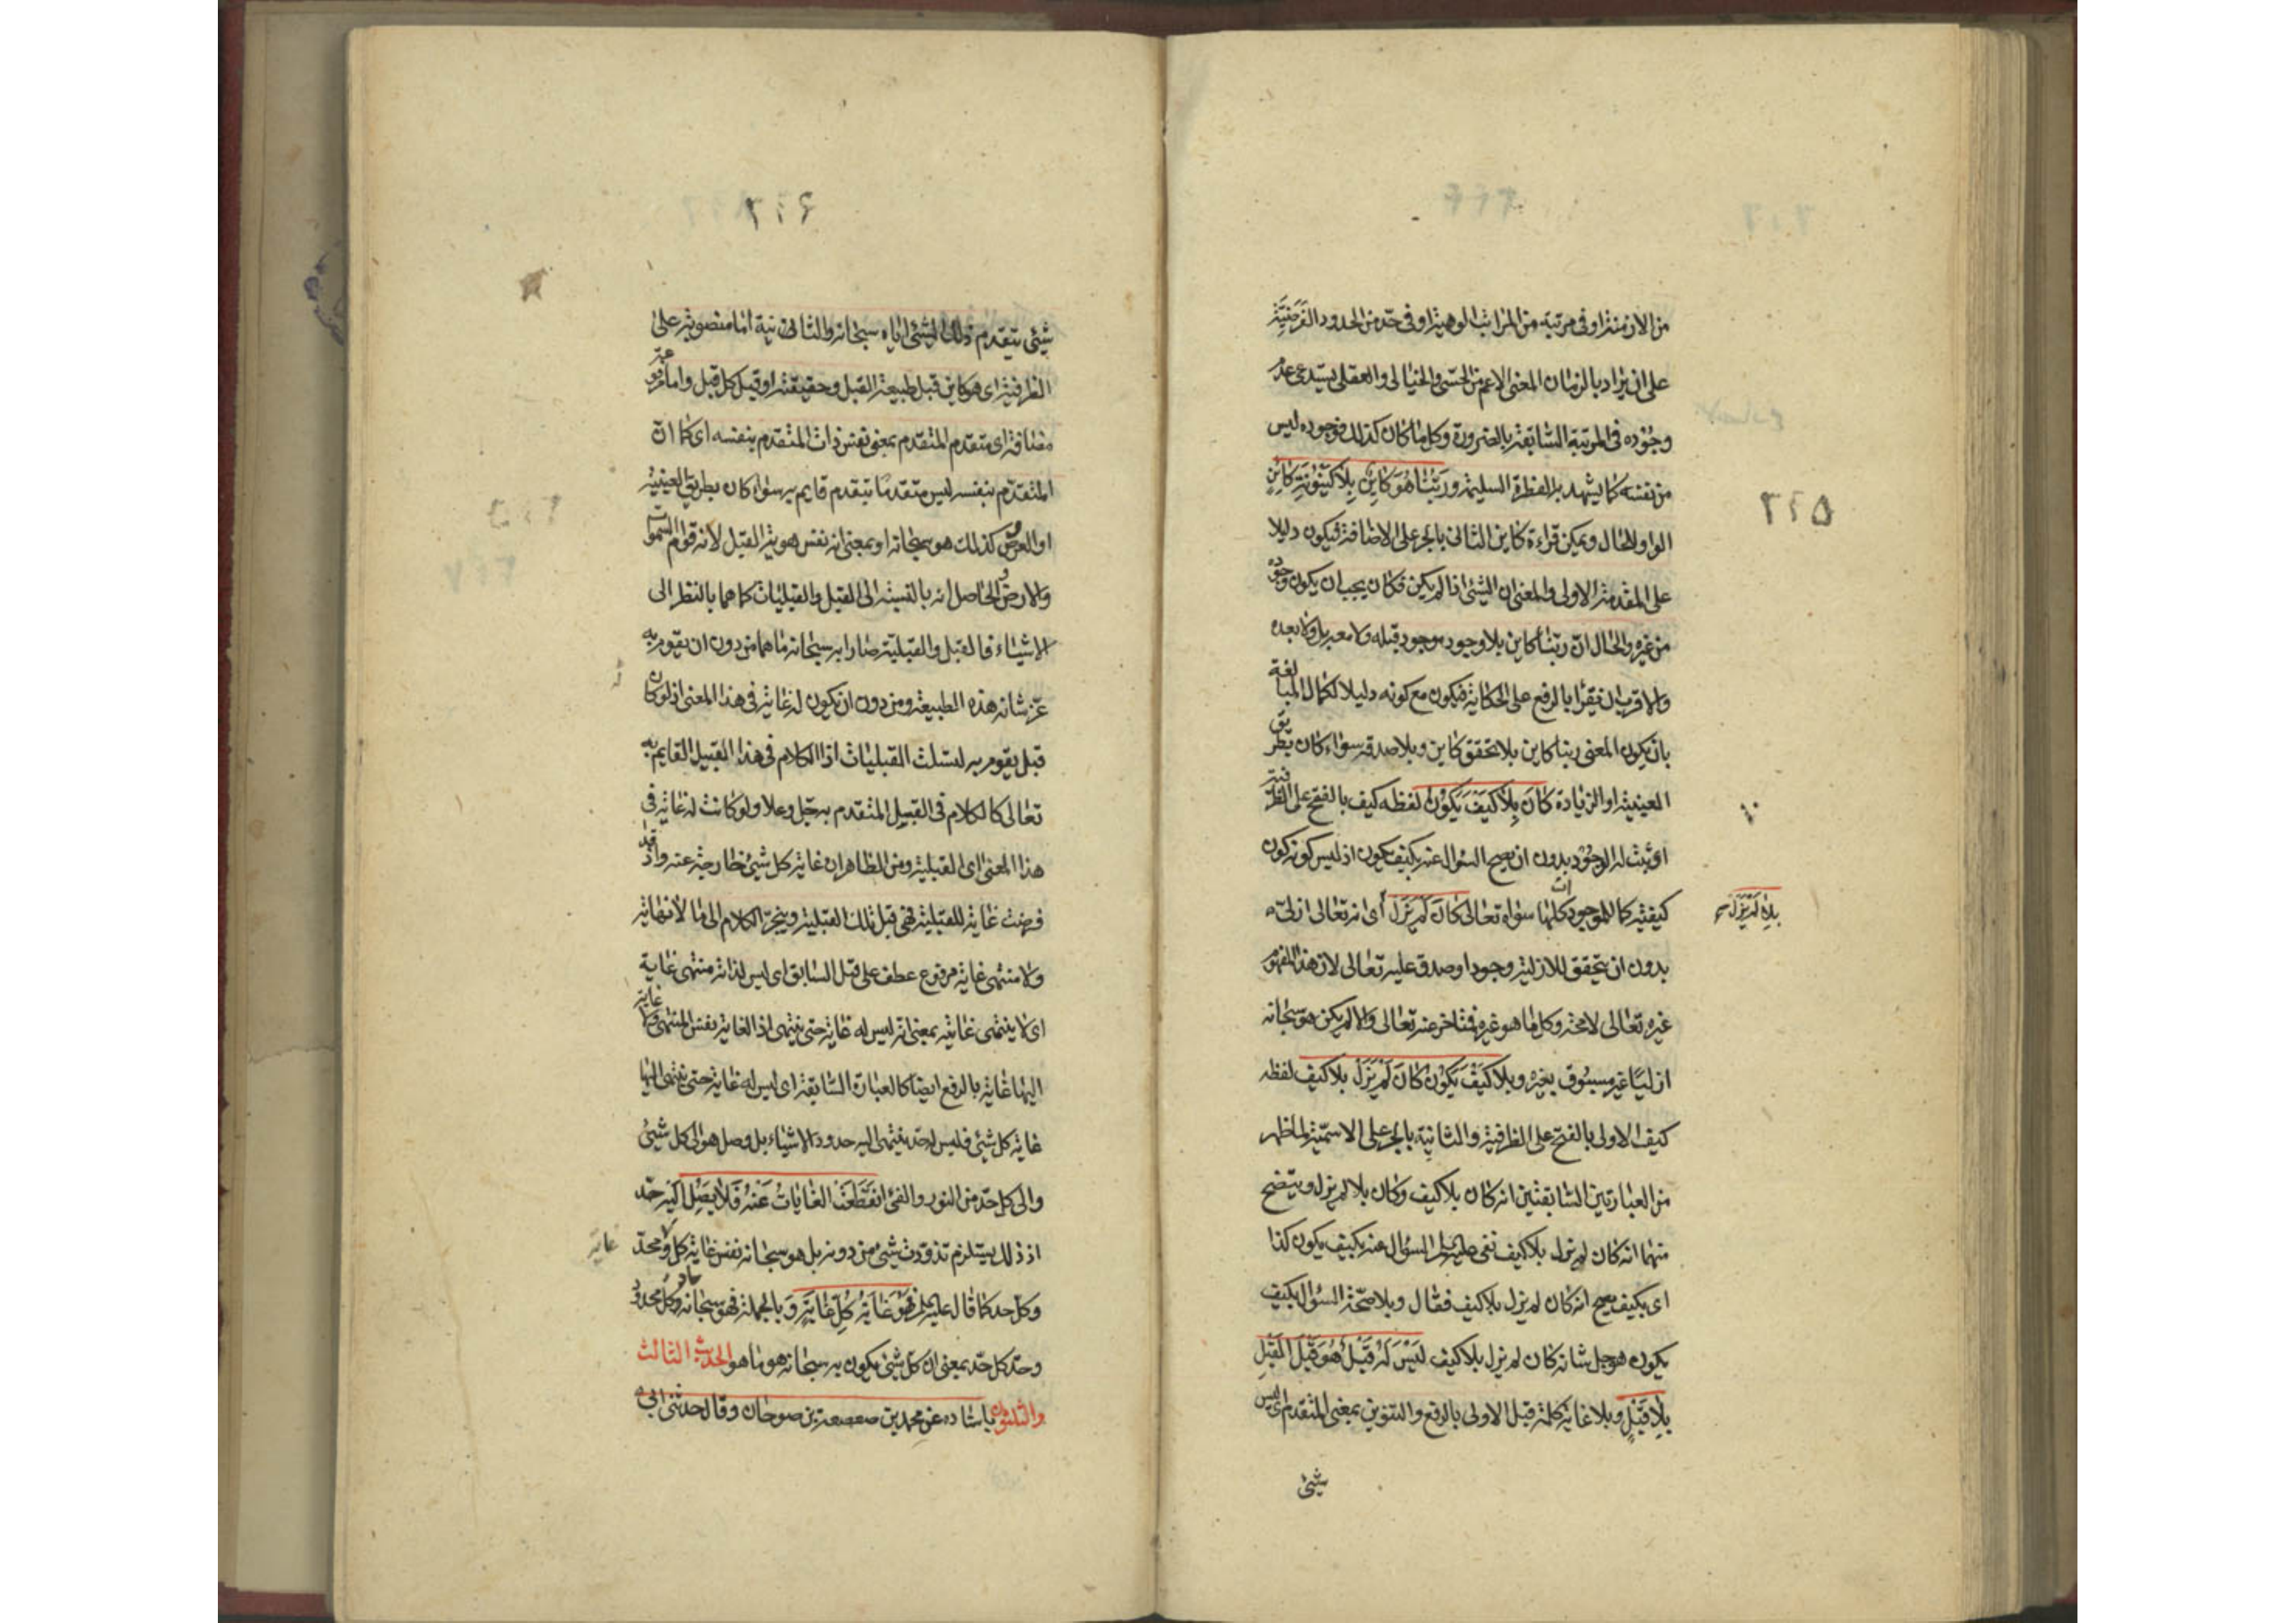 من الازمنة او فى مرتبة من المراتب الوهمية او فى حدّ من الحدود الفرضيّة
على ان يراد بالزمان المعنى الاعم من الحسّى والخيالى والعقلى يستدعى عدم
وجوده فى المرتبة السّابقة بالضرورة وكل ما كان كذلك فوجوده ليس
من نفسه كما يشهد به الفطرة السليمة وربّنا هُوَ كاينٌ بِلا كَيْنُونَةِ كاينٍ
الواو للحال ويمكن قراءة كاين الثانى بالجر على الاضافة فيكون دليلا
على المقدمة الاولى والمعنى ان الشئ اذا لم يكن فكان يجب ان يكون وجوده
من غيره والحال انّ ربّنا كاين بلا وجود موجود قبله ولا معه بل ولا بعده
والاقرب ان يقرأ بالرفع على الحكاية فيكون مع كونه دليلا لكمال المبالغة
بان يكون المعنى ربنا كاين بلا تحقق كاين وبلا صدقه سواء كان بطريق
العينية او الزيادة كَانَ بِلاَ كَيْفَ يَكُونُ لفظه كيف بالفتح على الظرفية
اى ثبت له الوجود بدون ان يصح السؤال عنه بكيف يكون اذ ليس كونه كون
كيفية كالموجودات كلها سواه تعالى كَانَ لَمْ يَزَلْ اى انه تعالى ازلىّ
بلا لَمْ يَزَلْ
بدون ان يتحقق للازلية وجود او صدق عليه تعالى لان هذا المفهوم
غيره تعالى لا محة وكل ما هو غيره فمتاخر عنه تعالى والا لم يكن هو سبحانه
ازليّا غير مسبوق بغيره وبلا كَيْفَ يَكُونُ كَانَ لَمْ يَزَلْ بلا كيف لفظه
كيف الاولى بالفتح على الظرفية والثانية بالجر على الاسميّة لما ظهر
من العبارتين السّابقتين انه كان بلا كيف وكان بلا لم يزل ويتضح
منهما انه كان لم يزل بلا كيف نفى السؤال عنه بكيف يكون كذا
اى بكيف يصح انه كان لم يزل بلا كيف فقال وبلا صحّة السؤال بكيف
يكون هو جل شانه كان لم يزل بلا كيف لَيْسَ لَهُ قَبْلٌ هُوَ قَبْلَ القَبْلِ
بِلا قَبْلٍ وبلا غاية كلمة قبل الاولى بالرفع والتنوين بمعنى المتقدم اى ليس
شئ
شئ يتقدم ذلك الشئ اياه سبحانه والثانية اما منصوبة على
الظرفية اى هو كاين قبل طبيعة القبل وحقيقته او قبل كل قبل واما مرفوعة
مضافة اى متقدم المتقدّم بمعنى نفس ذات المتقدم بنفسه اى كما انّ
المتقدّم بنفسه ليس متقدمًا بتقدم قايم به سواء كان بطريق العينية
او العروض كذلك هو سبحانه او بمعنى انه نفس هوية القبل لانه قوام السّموات
والارض والحاصل انه بالنسبة الى القبل والقبليات كما هما بالنظر الى
الاشياء فالقبل والقبلية صارا به سبحانه ما هما من دون ان يقوم به
عزّ شانه هذه الطبيعة ومن دون ان يكون له غاية فى هذا المعنى اذ لو كان
قبل يقوم به لتسلت القبليات اذ الكلام فى هذا القبيل القايم به
تعالى كالكلام فى القبيل المتقدم به جل وعلا ولو كانت له غاية فى
هذا المعنى اى القبلية ومن الظاهر ان غاية كل شئ خارجة عنه واذ قد
فرضت غاية للقبلية فهى قبل تلك القبلية وينجرّ الكلام الى ما لا نهاية
ولا منتهى غاية مرفوع عطف على قبل السابق اى ليس لذاته منتهى غاية
اى لا ينتهى غايته بمعنى انه ليس له غاية حتى ينتهى اذ الغاية نفس المنتهى ولا غاية
اليها غاية بالرفع ايضا كالعبارة السّابقة اى ليس له غاية حتى ينتهى اليها
غاية كل شئ فليس له حدّ ينتهى اليه حدود الاشياء بل وصل هو الى كل شئ
والى كل حدّ من النور والفئ انقَطَعَت الغَايَاتُ عَنْهُ فَلا يَصِلُ اليه حدّ
اذ ذلك يستلزم تذوّت شئ من دونه بل هو سبحانه نفس غاية كل ومحدّ
غاية
وكل حد كما قال عليه فَهُوَ غَايَةُ كُلِّ غَايَةٍ وَبالجملة فهو سبحانه حاد كل محدود
وحدّ كل حدّ بمعنى ان كلّ شئ يكون به سبحانه هو ما هو الحديث الثالث
والثلثون باسناده عن محمد بن صعصعة بن صوحان وقال حدثنى ابى